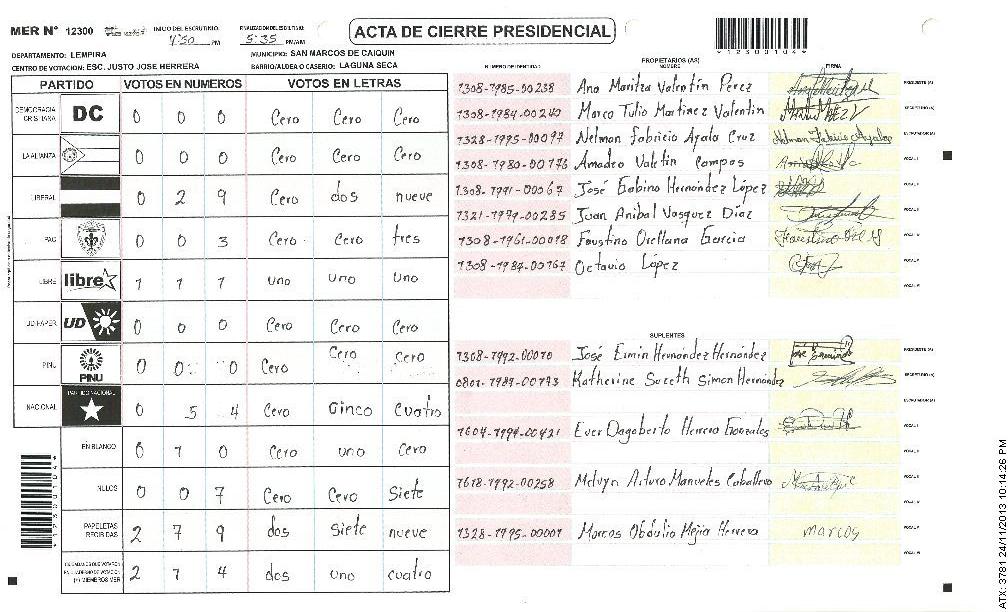 MER N° 12300 INICIO DEL ESCRUTINIO: 4:50 PM FINALIZACION DEL ESCRUTINIO: 5:35 PM/AM ACTA DE CIERRE PRESIDENCIAL
1 2 3 0 0 1 0 4 4
DEPARTAMENTO: LEMPIRA MUNICIPIO: SAN MARCOS DE CAIQUIN
CENTRO DE VOTACION: ESC. JUSTO JOSE HERRERA BARRIO/ALDEA O CASERIO: LAGUNA SECA
PARTIDO VOTOS EN NUMEROS VOTOS EN LETRAS
DEMOCRACIA CRISTIANA DC 0 0 0 Cero Cero Cero
LA ALIANZA 0 0 0 Cero Cero Cero
LIBERAL 0 2 9 Cero dos nueve
PAC 0 0 3 Cero Cero tres
LIBRE libre 1 1 1 uno uno uno
UD FAPER UD 0 0 0 Cero Cero Cero
PINU PINU 0 0 0 Cero Cero Cero
NACIONAL PARTIDO NACIONAL 0 5 4 Cero Cinco Cuatro
EN BLANCO 0 1 0 Cero uno Cero
NULOS 0 0 7 Cero Cero Siete
PAPELETAS RECIBIDAS 2 7 9 dos siete nueve
CIUDADANOS QUE VOTARON EN CUADERNO DE VOTACION (+) MIEMBROS MER 2 1 4 dos uno cuatro
PROPIETARIOS (AS)
NUMERO DE IDENTIDAD NOMBRE FIRMA
1308-1985-00238 Ana Maritza Valentín Pérez PRESIDENTE (A)
1308-1984-00240 Marco Tulio Martinez Valentin SECRETARIO (A)
1328-1995-00097 Nelman Fabricio Ayala Cruz ESCRUTADOR (A)
1308-1980-00176 Amadeo Valetin Campos VOCAL I
1308-1991-00067 José Gabino Hernández López VOCAL II
1321-1979-00285 Juan Anibal Vasquez Díaz VOCAL III
1308-1961-00018 Faustino Orellana Garcia VOCAL IV
1308-1984-00167 Octavio López VOCAL V
VOCAL VI
SUPLENTES
1308-1992-00010 José Ermin Hernández Hernández PRESIDENTE (A)
0801-1989-00773 Katherine Suceth Simon Hernández SECRETARIO (A)
ESCRUTADOR (A)
1604-1994-00421 Ever Dagoberto Herrera Gonzales VOCAL I
VOCAL II
1618-1992-00258 Melvyn Arturo Manueles Caballero VOCAL III
VOCAL IV
1328-1995-00001 Marcos Obdulio Mejia Herrera marcos VOCAL V
VOCAL VI
ATX: 3781 24/11/2013 10:14:26 PM